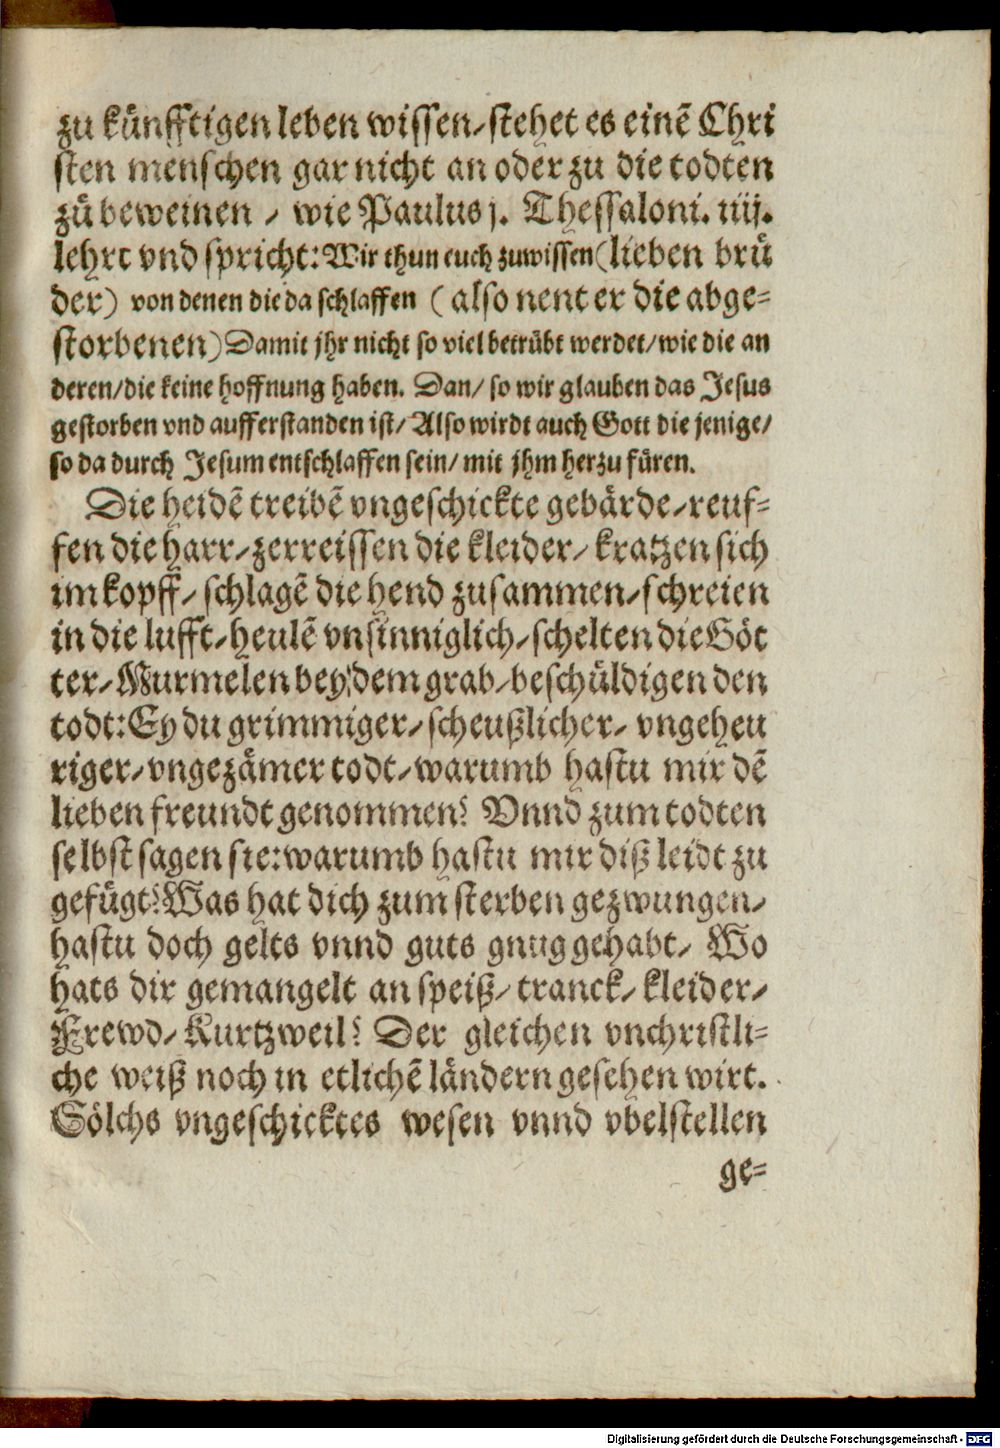 zu künfftigen leben wissen/ stehet es einē Chri
sten menschen gar nicht an oder zu die todten
zů beweinen / wie Paulus j. Thessaloni. iiij.
lehrt vnd spricht: Wir thun euch zuwissen (lieben brů
der) von denen die da schlaffen (also nent er die abge=
storbenen) Damit jhr nicht so viel betrübt werdet/ wie die an
deren/ die keine hoffnung haben. Dan/ so wir glauben das Jesus
gestorben vnd aufferstanden ist/ Also wirdt auch Gott die jenige/
so da durch Jesum entschlaffen sein/ mit jhm herzu füren.
Die heidē treibē vngeschickte gebärde/ reuf=
fen die harr/ zerreissen die kleider/ kratzen sich
im kopff/ schlagē die hend zusammen/ schreien
in die lufft/ heulē vnsinniglich/ schelten die Göt
ter/ Murmelen bey dem grab/ beschüldigen den
todt: Ey du grimmiger/ scheußlicher/ vngeheu
riger/ vngezämer todt/ warumb hastu mir dē
lieben freundt genommen? Vnnd zum todten
selbst sagen sie: warumb hastu mir diß leidt zu
gefügt? Was hat dich zum sterben gezwungen/
hastu doch gelts vnnd guts gnug gehabt/ Wo
hats dir gemangelt an speiß/ tranck/ kleider/
Frewd/ Kurtzweil? Der gleichen vnchristli=
che weiß noch in etlichē ländern gesehen wirt.
Sölchs vngeschicktes wesen vnnd vbelstellen
ge=
Digitalisierung gefördert durch die Deutsche Forschungsgemeinschaft - DFG